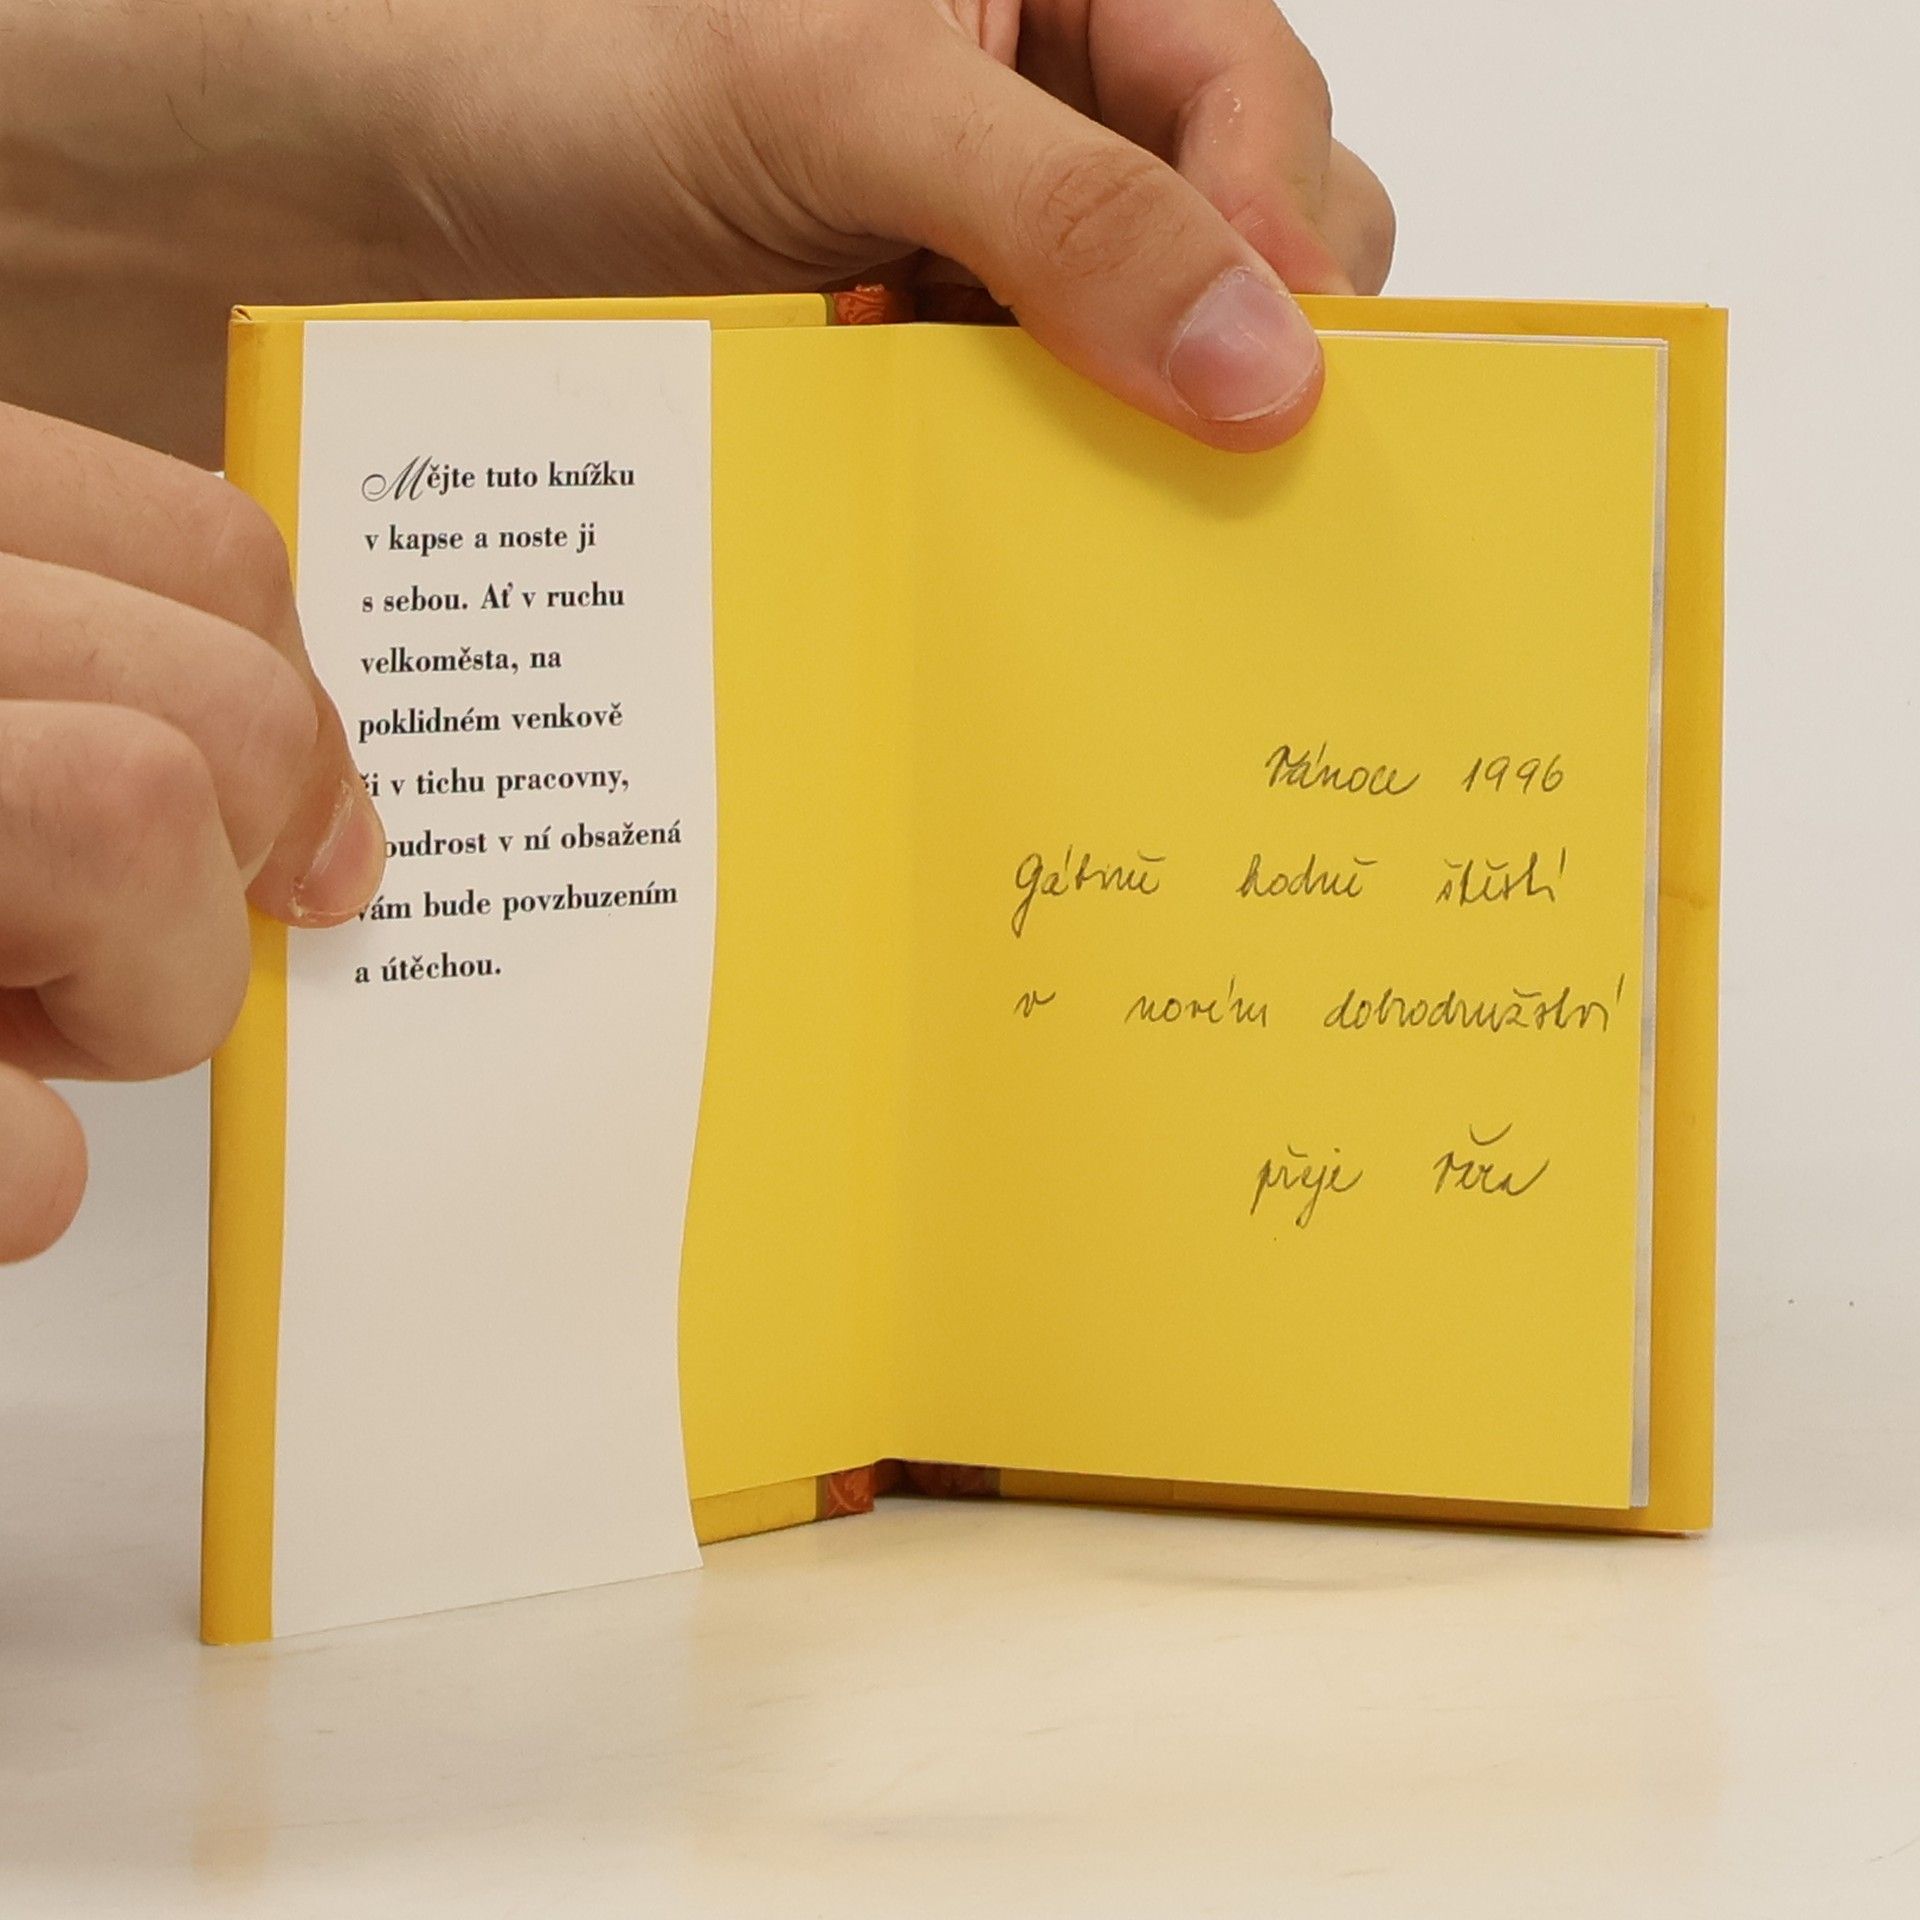 Mějte tuto knížku
v kapse a noste ji
s sebou. Ať v ruchu
velkoměsta, na
poklidném venkově
či v tichu pracovny,
oudrost v ní obsažená
vám bude povzbuzením
a útěchou.
Vánoce 1996
Gábině hodně štěstí
v novém dobrodružství
přeje Věra